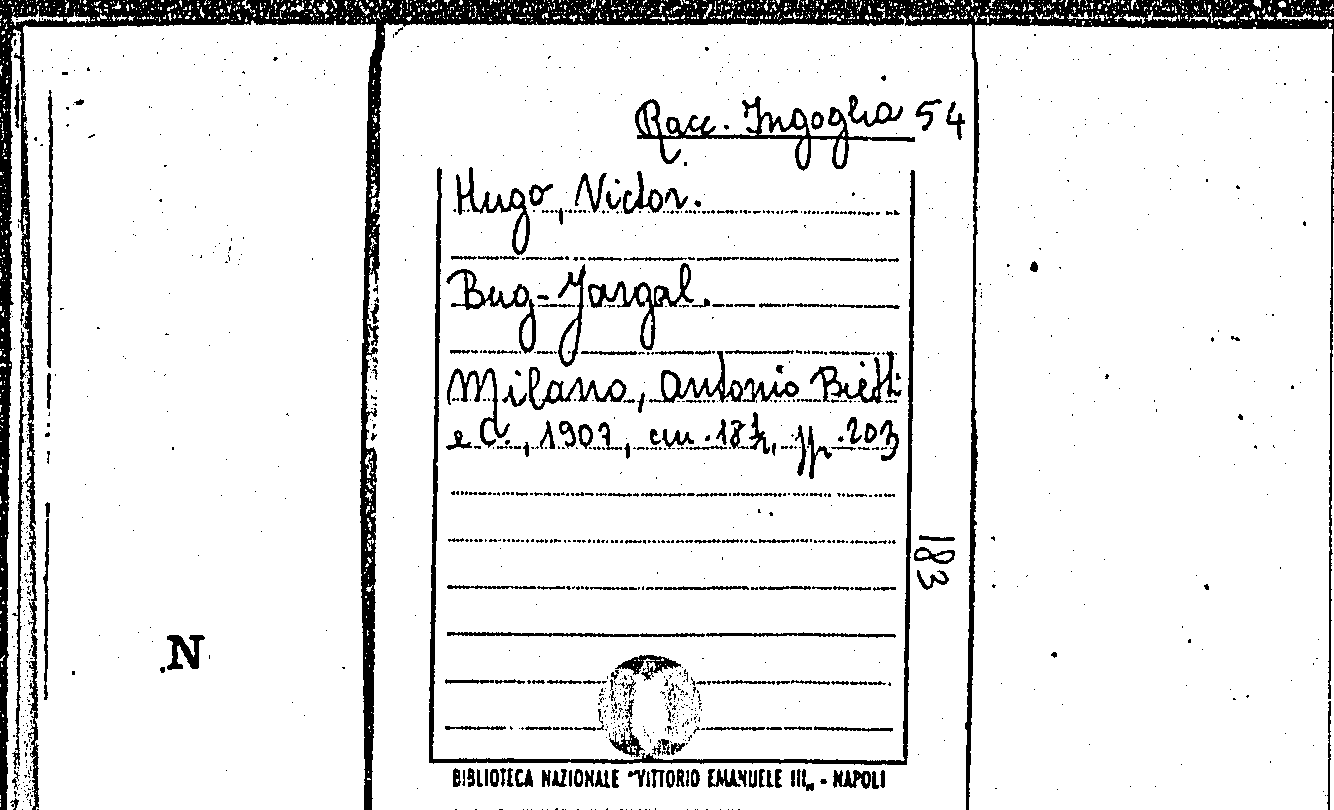 Racc. Ingoglia 54
Hugo, Victor.
Bug-Jargal.
Milano, Antonio Bietti
e C., 1907, cm. 18½, pp. 203
183
N
BIBLIOTECA NAZIONALE "VITTORIO EMANUELE III„ - NAPOLI